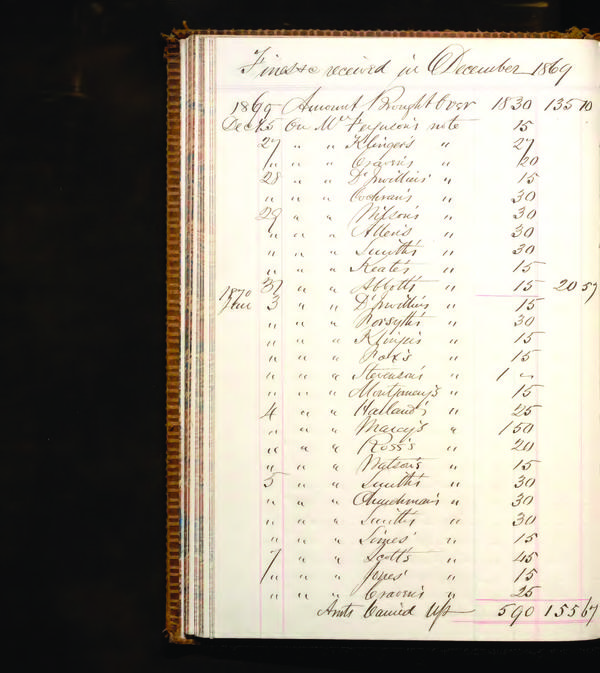 Fines &c received in December 1869
1869 Amount Brought Over 1830 135 10
Dec 15 On Mr Ferguson's note 15
27 " " Klinger's " 27
" " " Craven's " 20
28 " " D. Irwillin's " 15
" " " Cochran's " 30
29 " " Wilson's " 30
" " " Allen's " 30
" " " Smith's " 30
" " " Keate's " 15
31 " " Abbott's " 15 20 57
1870
Jan 3 " " D. Irwillin's " 15
" " " Forsyth's " 30
" " " Klinger's " 15
" " " Fox's " 15
" " " Stevenson's " 1 "
" " " Montgomery's " 15
4 " " Harland's " 25
" " " Marcy's " 1 50
" " " Ross's " 20
" " " Watson's " 15
5 " " Smith's " 30
" " " Churchman's " 30
" " " Smith's " 30
" " " Simes' " 15
7 " " Scott's " 45
" " " Jones' " 15
" " " Craven's " 25
Amts Carried Up 5 90 155 67